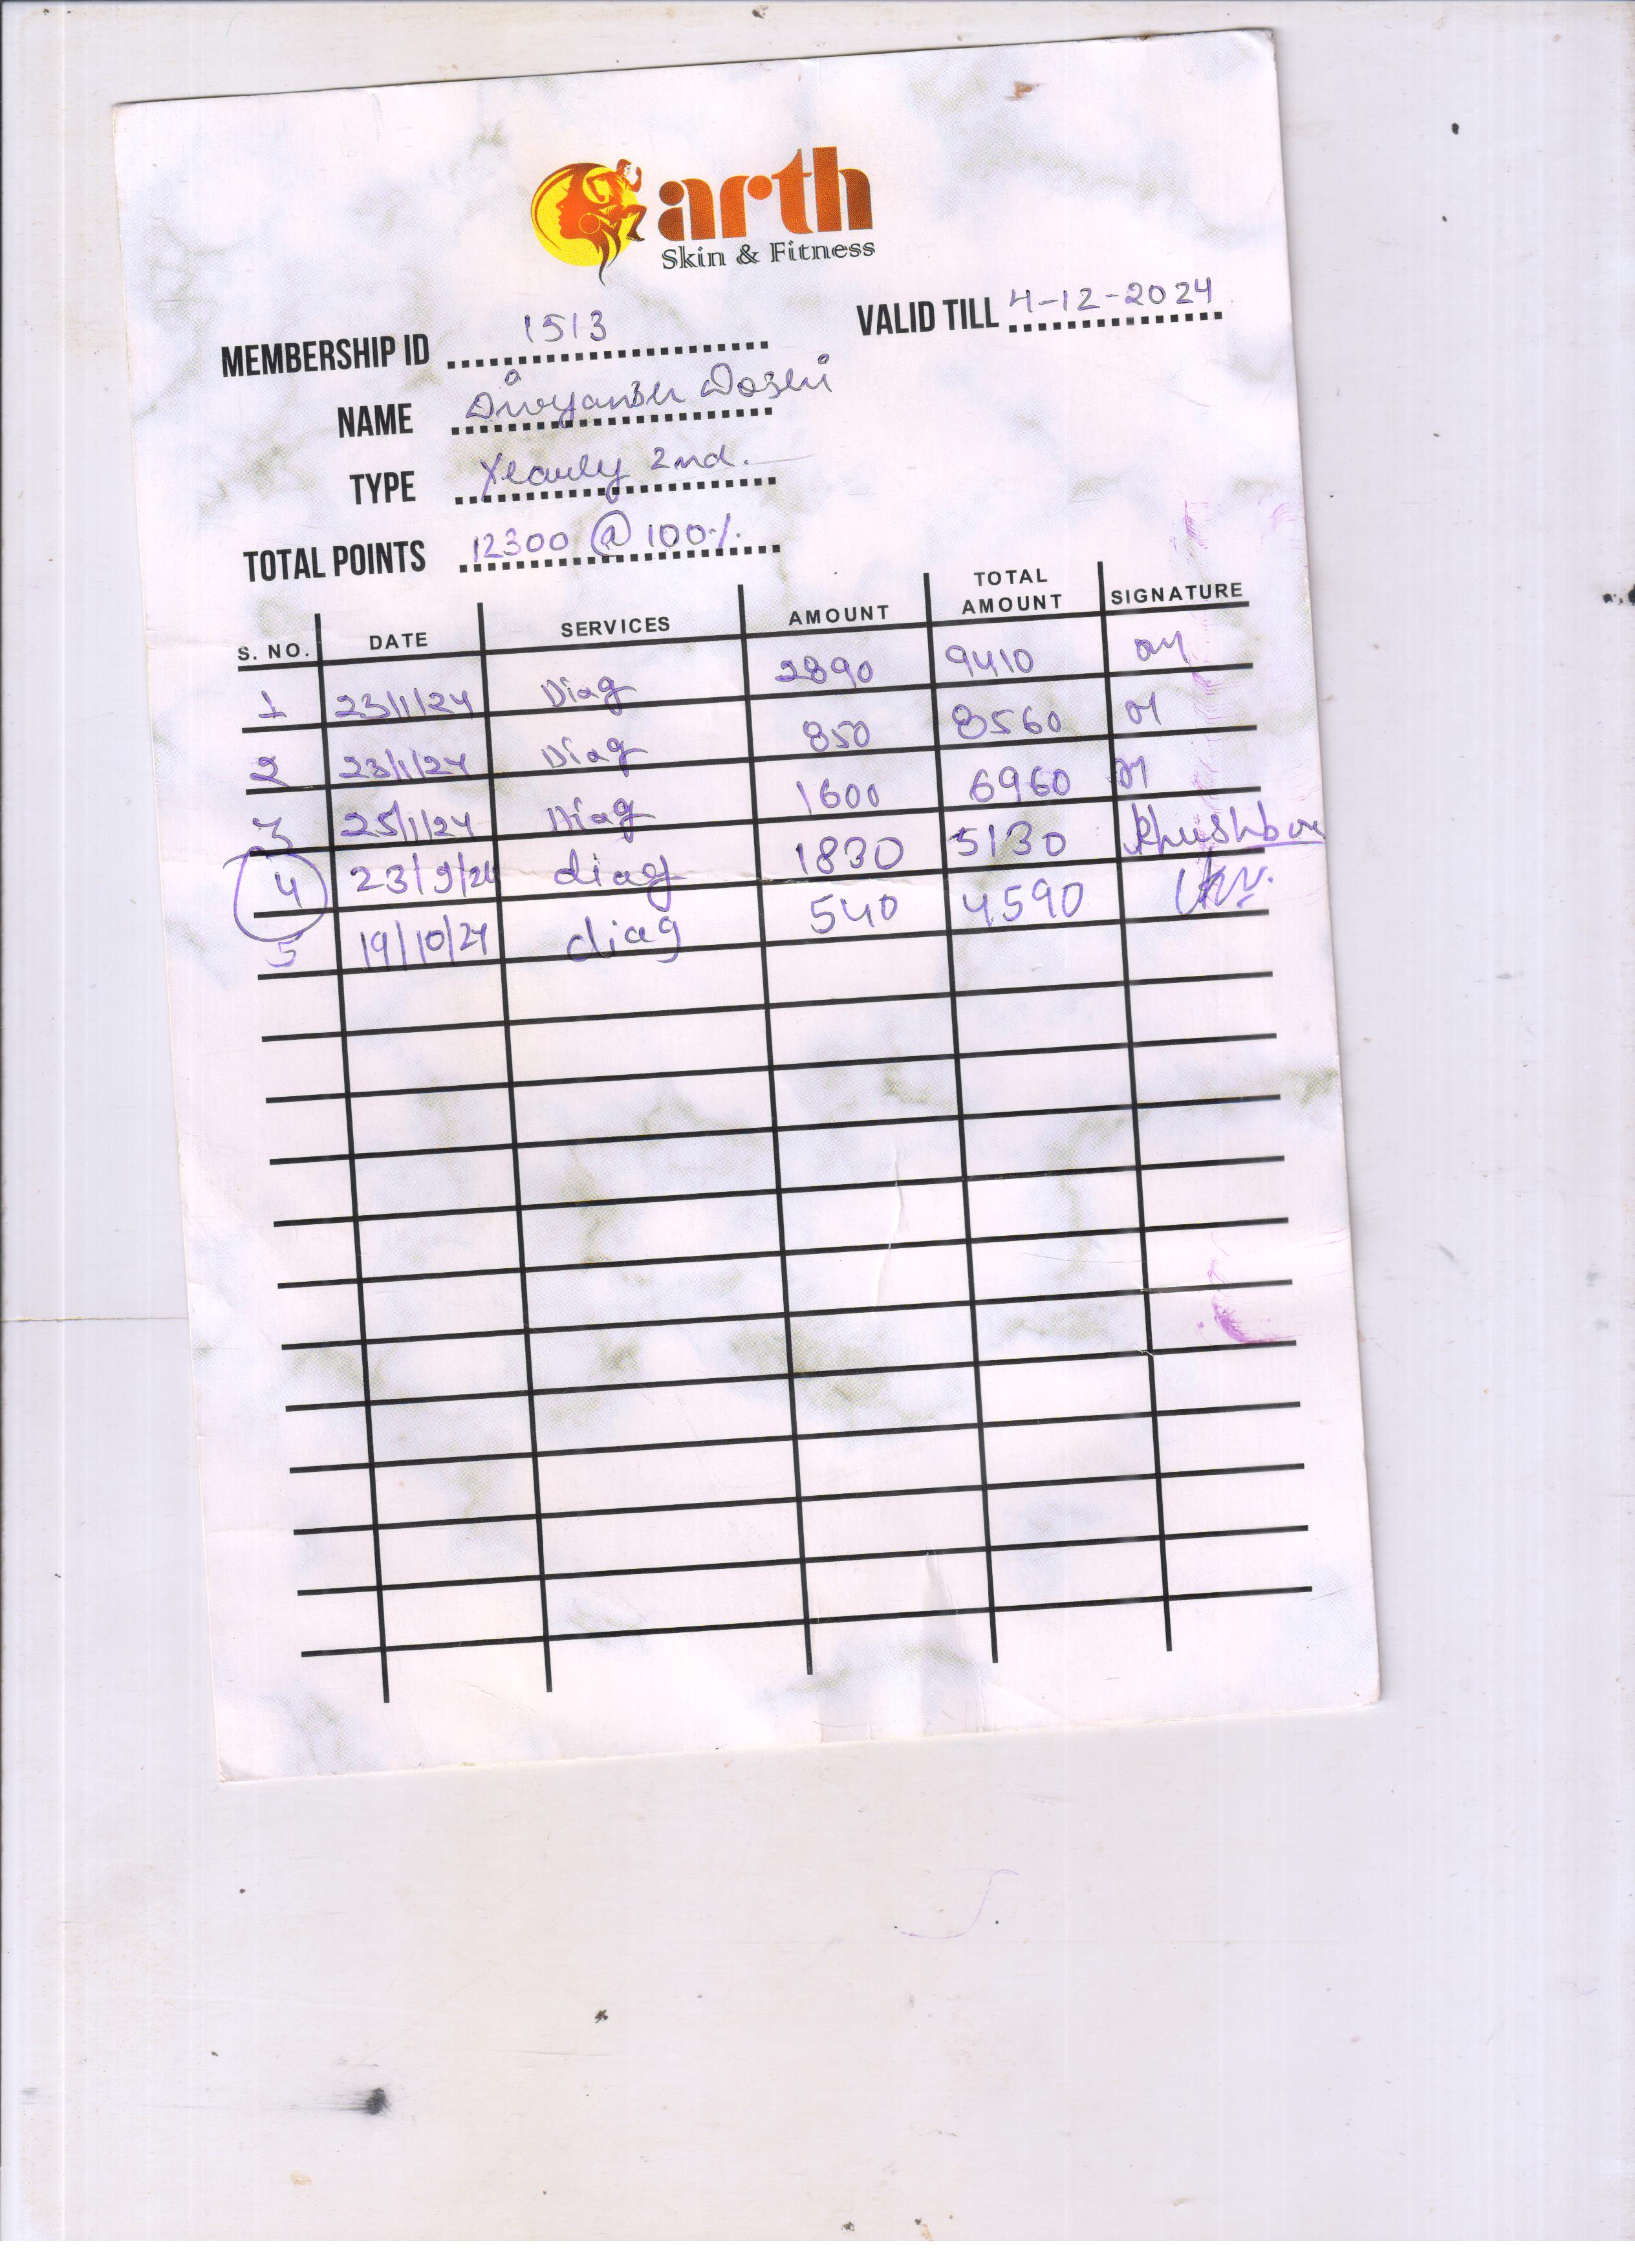 arth
Skin & Fitness
MEMBERSHIP ID 1513 VALID TILL 4-12-2024
NAME Divyansh Doshi
TYPE Yearly 2nd.
TOTAL POINTS 12300 @ 100%
S. NO. DATE SERVICES AMOUNT TOTAL AMOUNT SIGNATURE
1 23/1/24 Diag 2890 9410
2 23/1/24 Diag 850 8560
3 25/1/24 Diag 1600 6960
4 23/9/24 diag 1830 5130 Khushboo
5 19/10/24 diag 540 4590